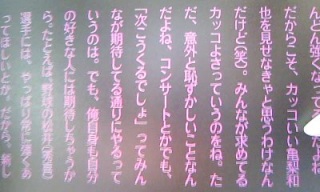 んどん強くなってたよね。
だからこそ、カッコいい亀梨和
也を見せなきゃと思うわけなん
だけど(笑)。みんなが求めてる
カッコよさっていうのをね。た
だ、意外と恥ずかしいことなん
だよね、コンサートとかでも、
「次こうくるでしょ」ってみん
なが期待してる通りにやるって
いうのは。でも、俺自身も自分
の好きな人には期待しちゃうか
ら。たとえば、野球の松井(秀喜)
選手には、やっぱり常に強くあ
ってほしいとか。だから、新し